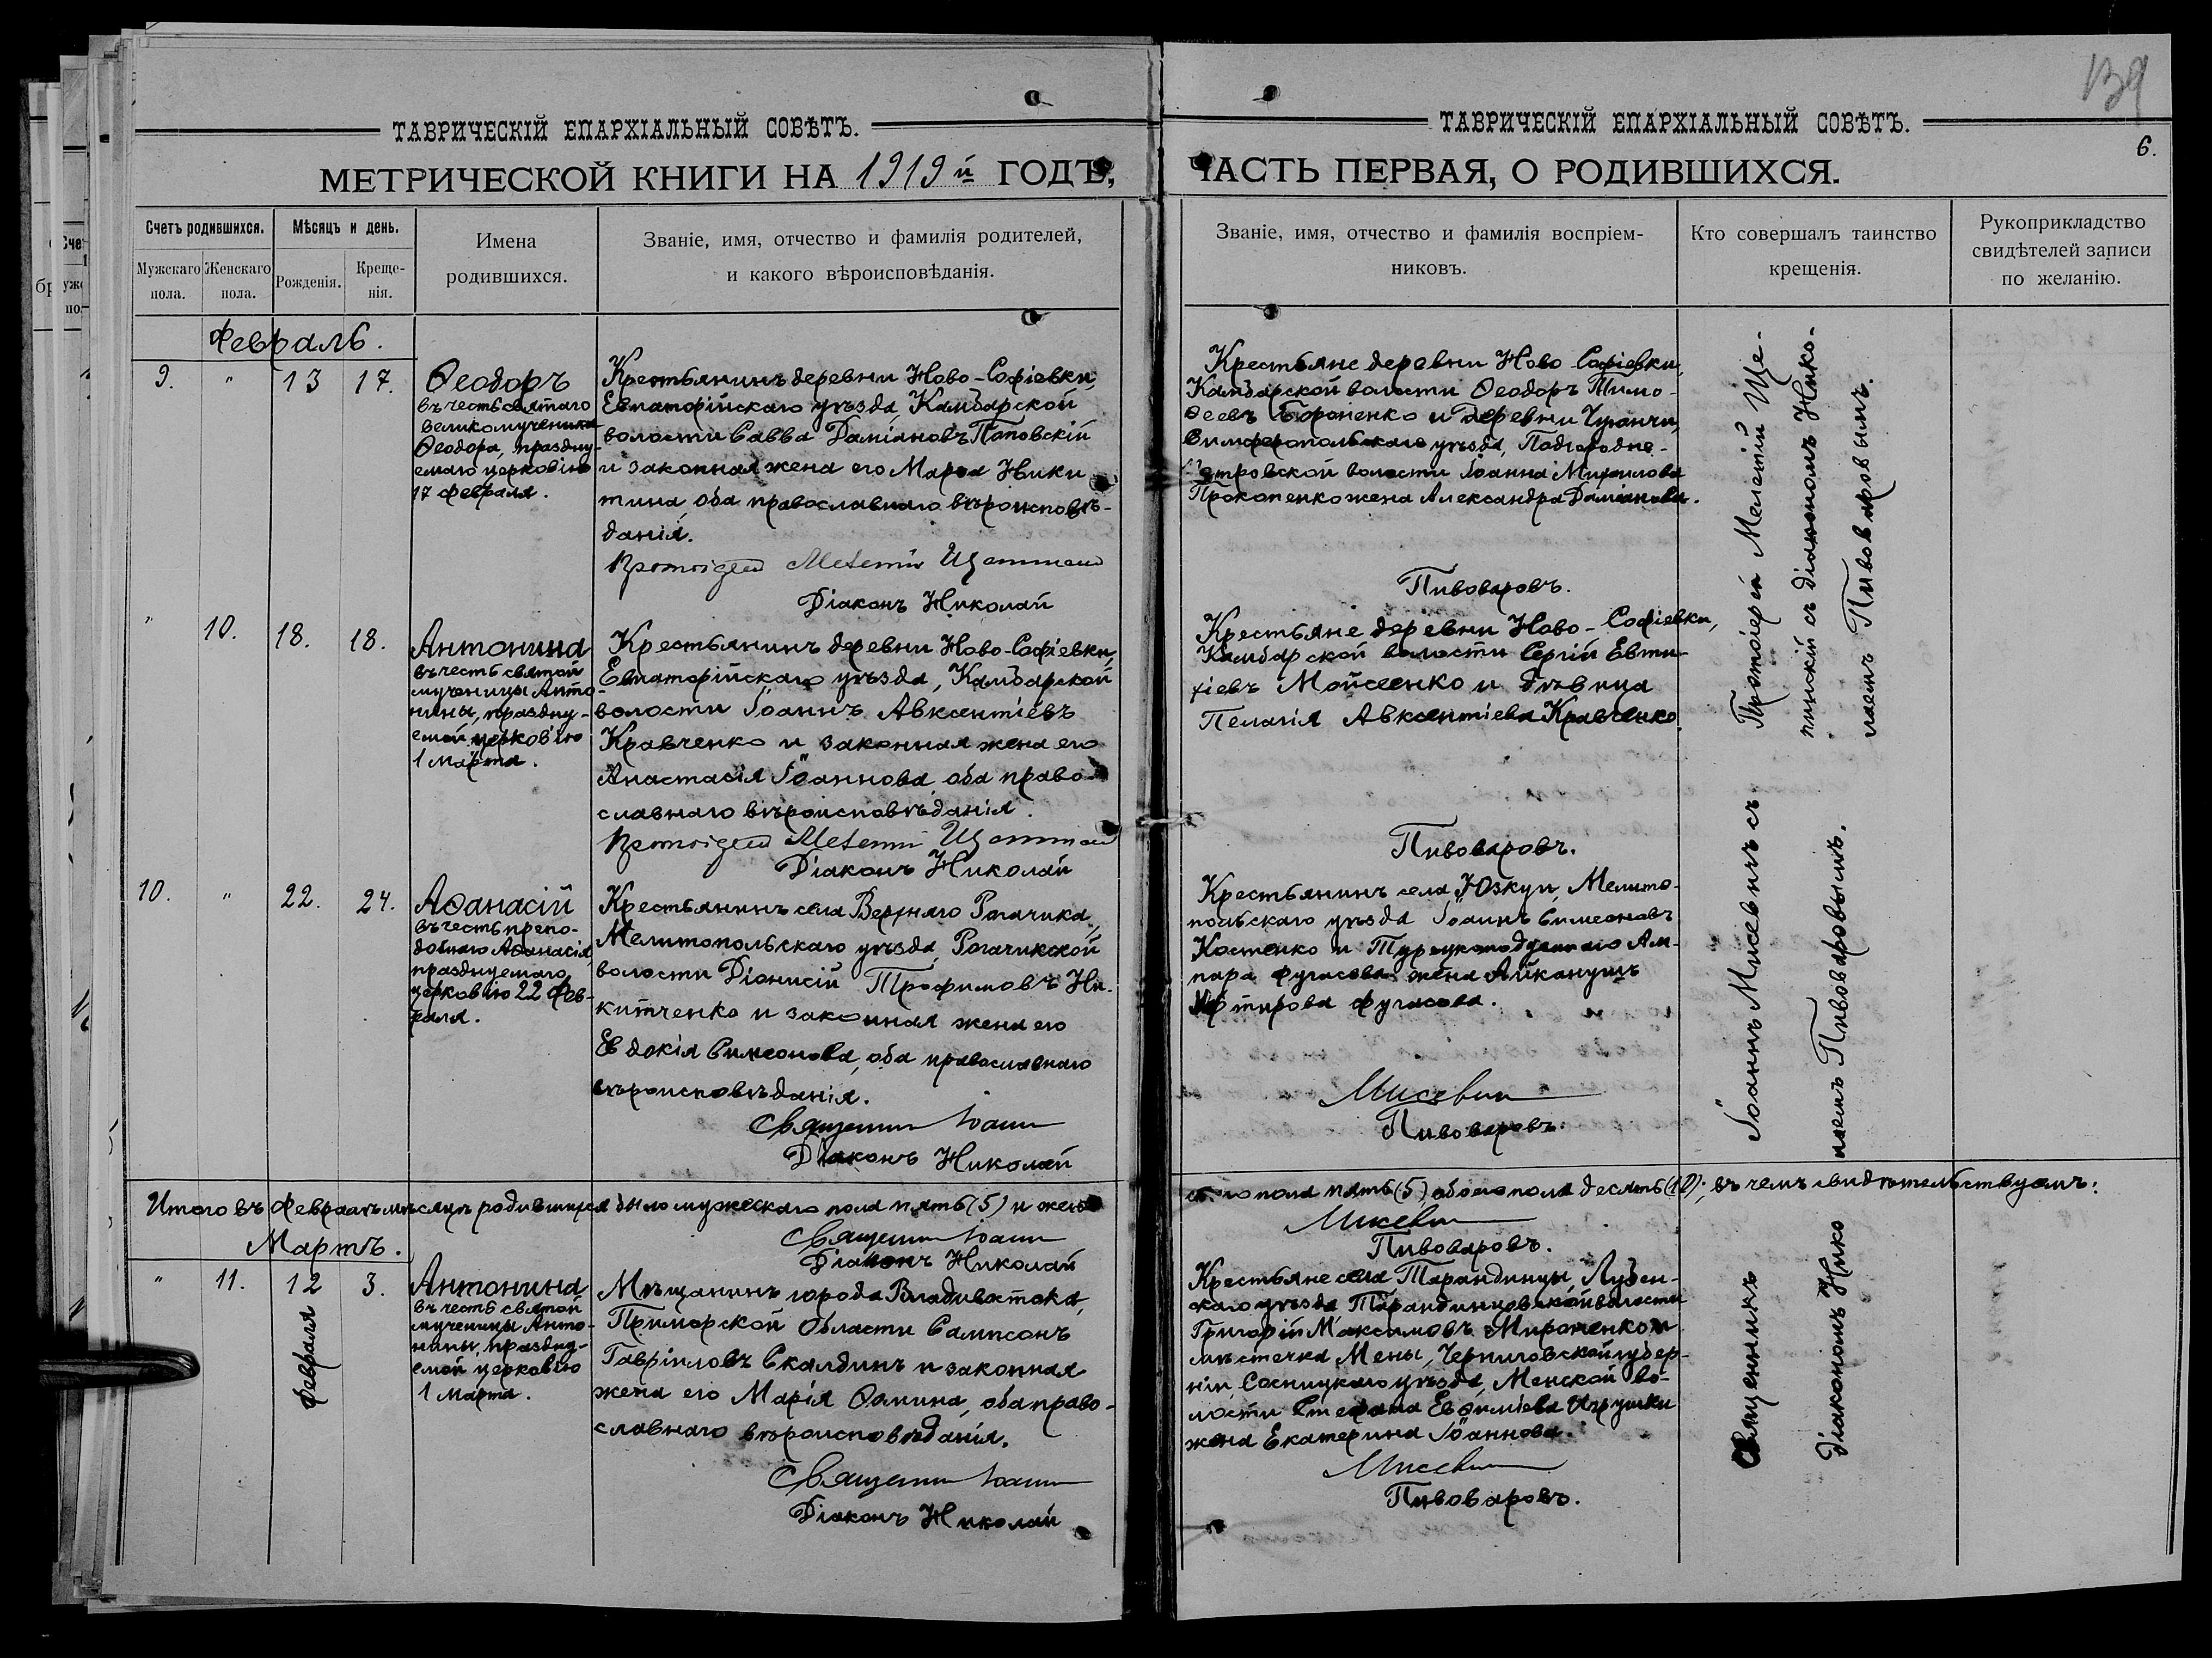 139
6.
ТАВРИЧЕСКІЙ ЕПАРХІАЛЬНЫЙ СОВѢТЪ.
МЕТРИЧЕСКОЙ КНИГИ НА 1919й ГОДЪ,
Счетъ родившихся.
Мужскаго пола.
Женскаго пола.
Мѣсяцъ и день.
Рожденія.
Креще-
нія.
Имена
родившихся.
Званіе, имя, отчество и фамилія родителей,
и какого вѣроисповѣданія.
Февраль.
9.
"
13
17.
Ѳеодоръ
въ честь святаго
великомученика
Ѳеодора, праздну-
емаго церковію
17 февраля.
Крестьянинъ деревни Ново-Софіевки,
Евпаторійскаго уѣзда, Камбарской
волости Савва Даміановъ Поповскій
и законная жена его Марѳа Ники
тина, оба православнаго вѣроисповѣ-
данія.
Протоіерей Мелетій
Діаконъ Николай
"
10.
18.
18.
Антонина
въ честь святой
мученицы Анто-
нины, праздну-
емой церковію
1 Марта.
Крестьянинъ деревни Ново-Софіевки,
Евпаторійскаго уѣзда, Камбарской
волости Іоаннъ Авксентіевъ
Кравченко и законная жена его
Анастасія Іоаннова, оба право-
славнаго вѣроисповѣданія.
Протоіерей Мелетій
Діаконъ Николай
10.
"
22.
24.
Аѳанасій
въ честь препо-
добнаго Аѳанасія,
празднуемаго
церковію 22 Фев-
раля.
Крестьянинъ села Верхняго Рогачика,
Мелитопольскаго уѣзда, Рогачикской
волости Діонисій Трофимовъ Ни-
китченко и законная жена его
Евдокія Симеонова, оба православнаго
вѣроисповѣданія.
Священникъ Іоаннъ
Діаконъ Николай
Итого въ Февралѣ мѣсяцѣ родившихся было мужескаго пола пять (5) и жен
Священникъ Іоаннъ
Діаконъ Николай
Мартъ.
"
11.
12
февраля
3.
Антонина
въ честь святой
мученицы Анто-
нины, праздну-
емой церковію
1 Марта.
Мѣщанинъ города Владивостока,
Приморской Области Сампсонъ
Гавріиловъ Скалдинъ и законная
жена его Марія Ѳомина, оба право-
славнаго вѣроисповѣданія.
Священникъ Іоаннъ
Діаконъ Николай
ТАВРИЧЕСКІЙ ЕПАРХІАЛЬНЫЙ СОВѢТЪ.
ЧАСТЬ ПЕРВАЯ, О РОДИВШИХСЯ.
Званіе, имя, отчество и фамилія воспріем-
никовъ.
Кто совершалъ таинство
крещенія.
Рукоприкладство
свидѣтелей записи
по желанію.
Крестьяне деревни Ново-Софіевки,
Камбарской волости Ѳеодоръ Тимо-
ѳеевъ Бороненко и деревни
Симферопольскаго уѣзда, Подгородне-
Петровской волости Іоанна Михаилова
Прокопенко жена Александра Даміанова.
Пивоваровъ.
Крестьяне деревни Ново-Софіевки,
Камбарской волости Сергій Евти-
хіевъ Мойсеенко и дѣвица
Пелагія Авксентіева Кравченко.
Пивоваровъ.
Крестьянинъ села Юзкуи, Мелито-
польскаго уѣзда Іоаннъ Симеоновъ
Костенко и Ам-
пара Фугасова жена Айканушъ
Фугасова.
Мисевич
Пивоваровъ.
скаго пола пять (5), обоего пола десять (10); въ чемъ свидѣтельствуемъ:
Мисевич
Пивоваровъ.
Крестьяне села Тарандинцы, Лубен-
скаго уѣзда Тарандинцовской волости
Григорій Максимовъ Мироненко и
мѣстечка Мены, Черниговской губер-
ніи, Сосницкаго уѣзда, Менской во-
лости Стефана Евѳиміева
жена Екатерина Іоаннова.
Мисевич
Пивоваровъ.
Протоіерей Мелетій Ще-
тинскій съ діакономъ Нико-
лаемъ Пивоваровымъ.
Священникъ Іоаннъ Мисевичъ съ
діакономъ Николаемъ Пивоваровымъ.